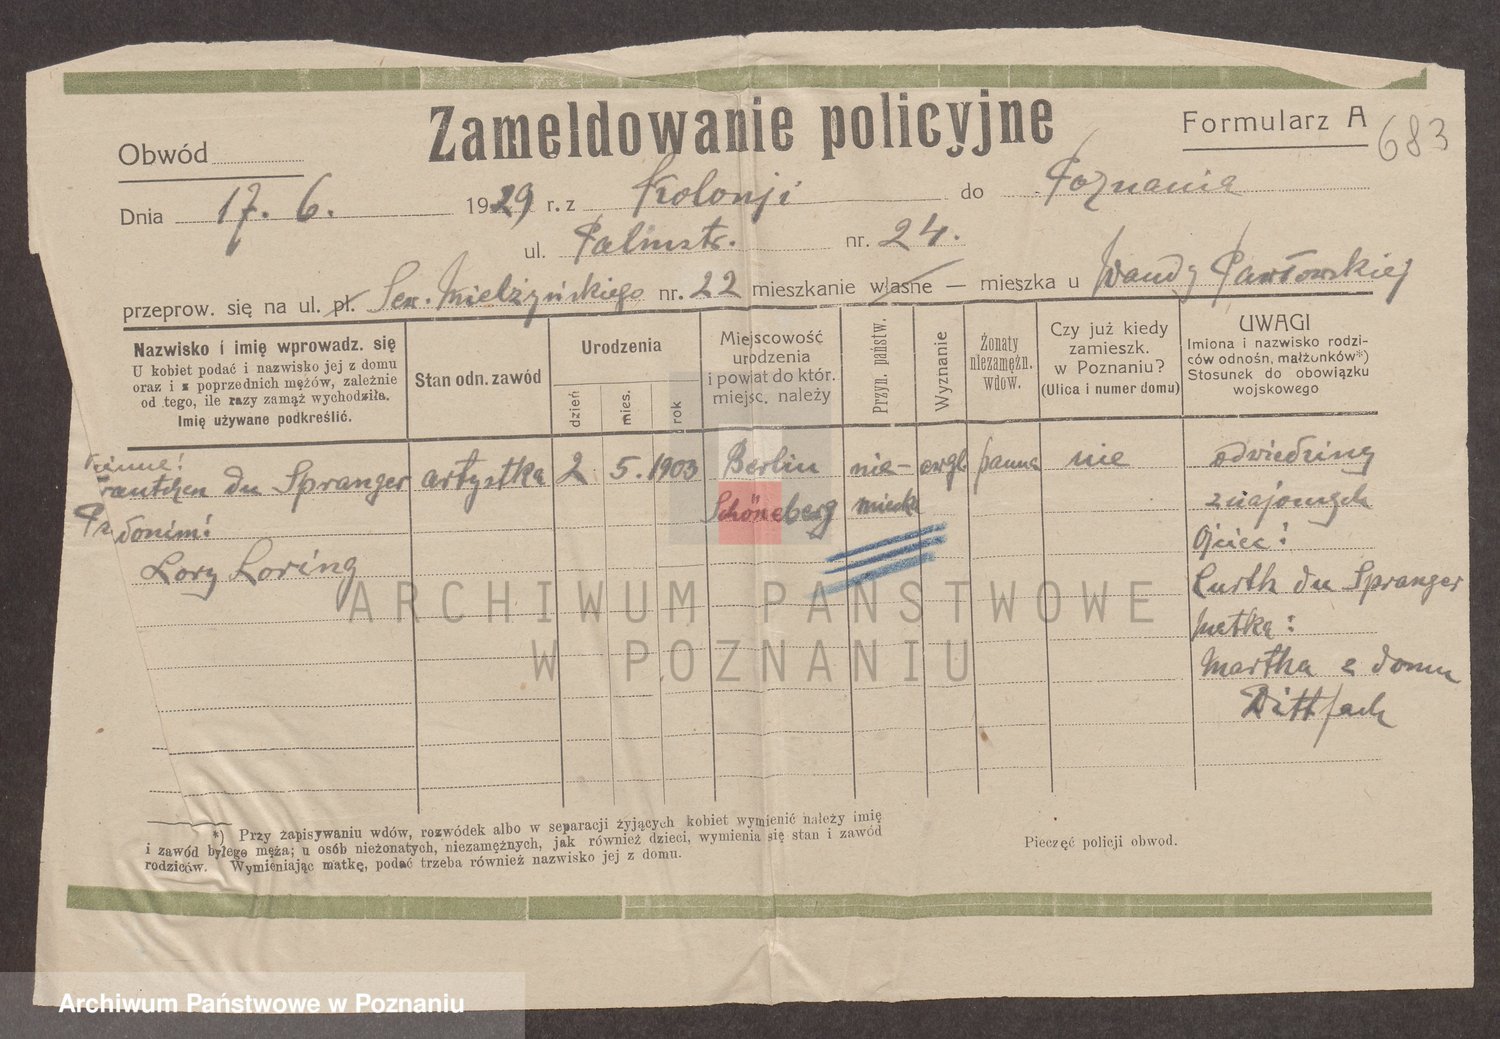 Zameldowanie policyjne
Formularz A
683
Obwód
Dnia 17. 6. 1929 r. z Kolonji do Poznania
ul. Palmstr. nr. 24.
przeprow. się na ul. pł. Sew. Mielżyńskiego nr. 22 mieszkanie własne — mieszka u Wandy Pawłowskiej
Nazwisko i imię wprowadz. się
U kobiet podać i nazwisko jej z domu
oraz i z poprzednich mężów, zależnie
od tego, ile razy zamąż wychodziła.
Imię używane podkreślić.
Stan odn. zawód
Urodzenia
dzień
mies.
rok
Miejscowość
urodzenia
i powiat do któr.
miejsc. należy
Przyn. państw.
Wyznanie
Żonaty
niezamężn.
wdow.
Czy już kiedy
zamieszk.
w Poznaniu?
(Ulica i numer domu)
UWAGI
Imiona i nazwisko rodzi-
ców odnośn, małżonków*)
Stosunek do obowiązku
wojskowego
du Spranger artystka 2 5. 1903 Berlin nie- ewgl panna nie odwiedziny
Schöneberg miecka znajomych
donim! Ojciec:
Lory Loring Curth du Spranger
matka:
Martha z domu
Dittfach
ARCHIWUM PAŃSTWOWE
W POZNANIU
*) Przy zapisywaniu wdów, rozwódek albo w separacji żyjących kobiet wymienić należy imię
i zawód byłego męża; u osób nieżonatych, niezamężnych, jak również dzieci, wymienia się stan i zawód
rodziców. Wymieniając matkę, podać trzeba również nazwisko jej z domu.
Pieczęć policji obwod.
Archiwum Państwowe w Poznaniu